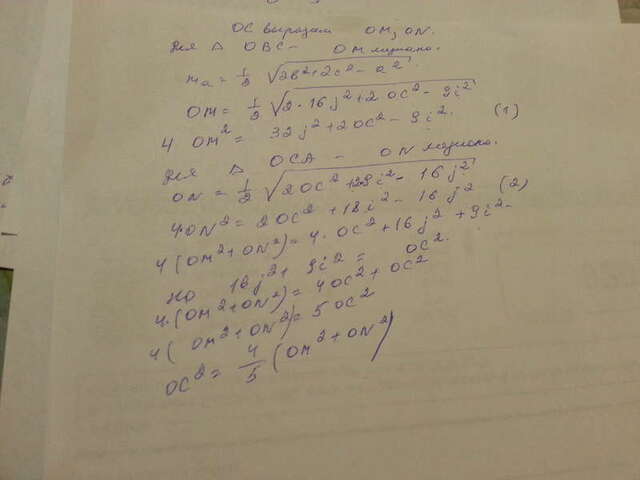 OC выразим OM, ON.
Для Δ OBC - OM медиана.
mₐ = 1/2 √(2b² + 2c² - a²)
OM = 1/2 √(2·16j² + 2OC² - 9i²)
4 OM² = 32j² + 2OC² - 9i². (1)
Для Δ OCA - ON медиана.
ON = 1/2 √(2OC² + 2·9i² - 16j²)
4ON² = 2OC² + 18i² - 16j² (2)
4(OM² + ON²) = 4·OC² + 16j² + 9i² -
Но 16j² + 9i² = OC².
4·(OM² + ON²) = 4OC² + OC²
4(OM² + ON²) = 5OC²
OC² = 4/5 (OM² + ON²)